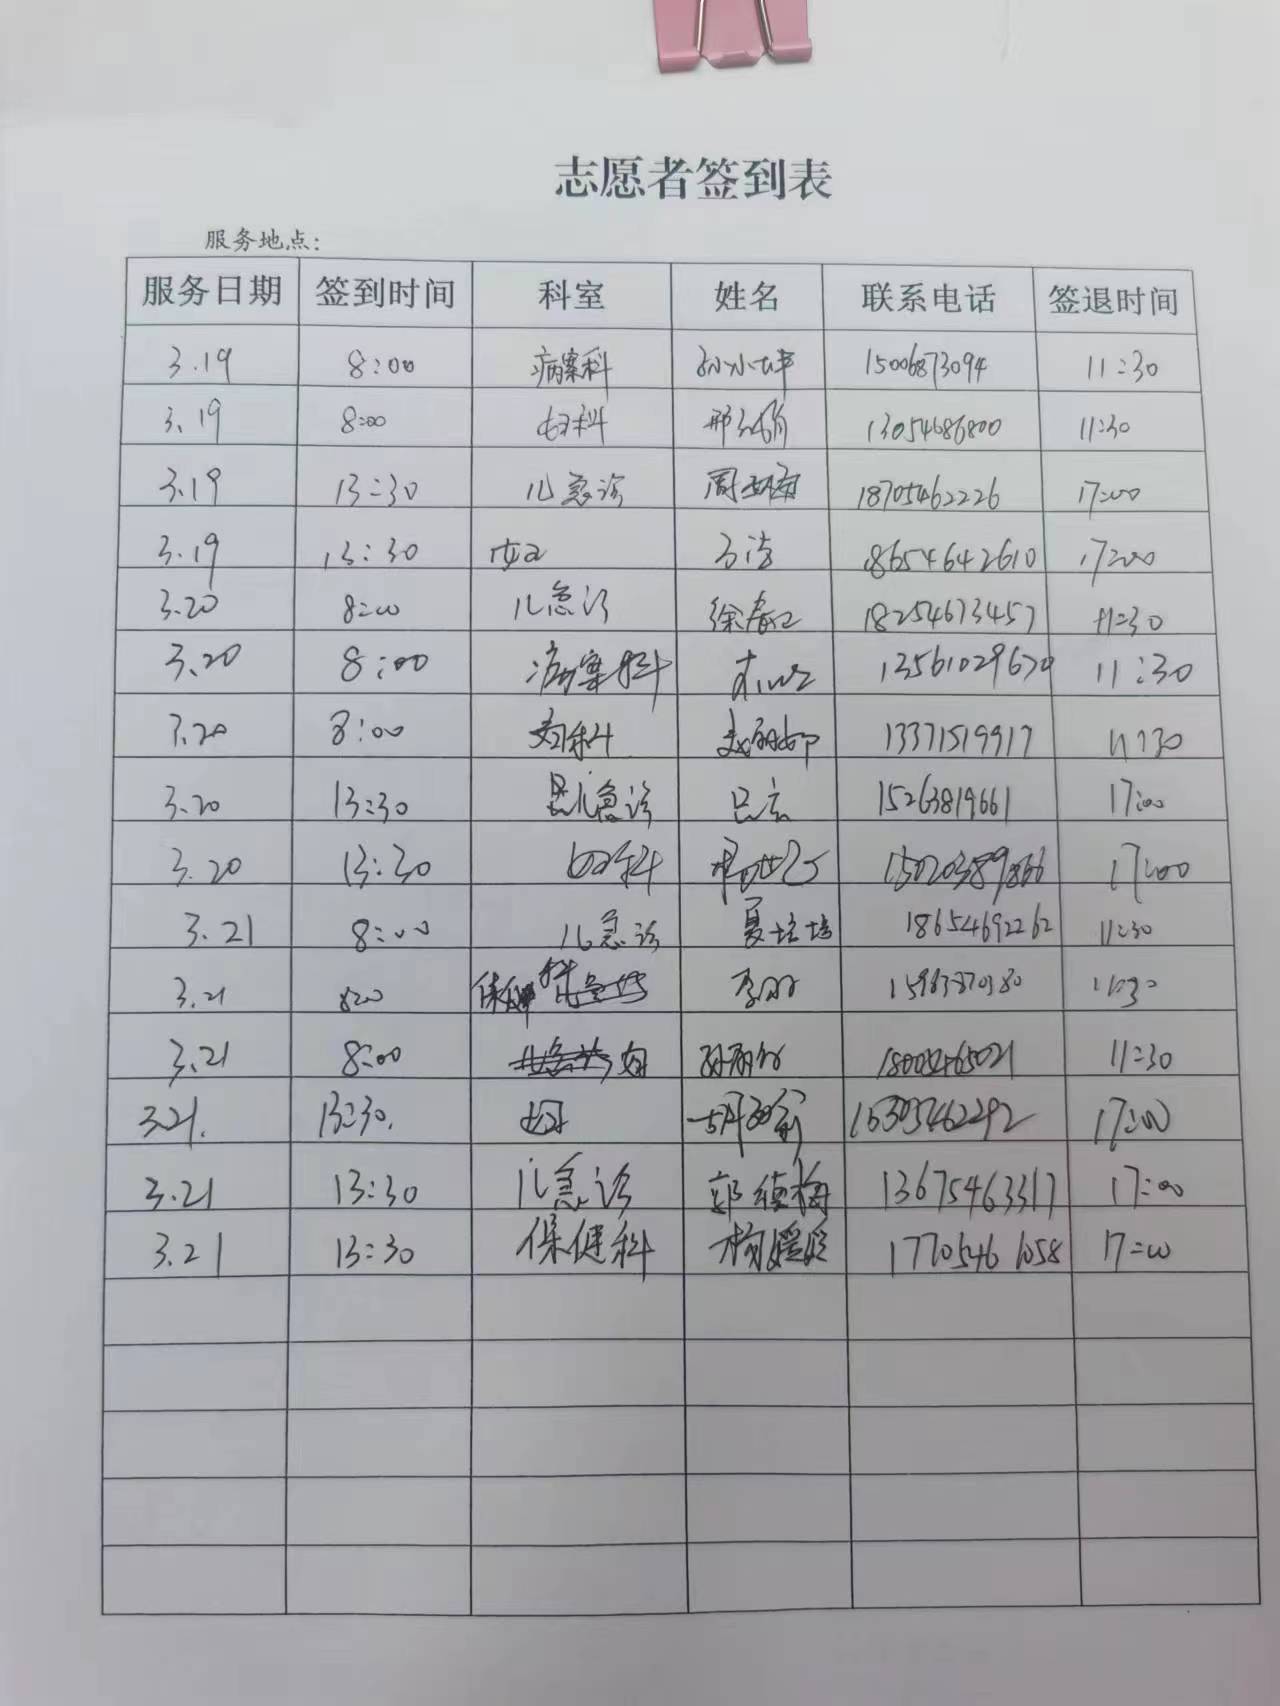 志愿者签到表
服务地点:
服务日期 签到时间 科室 姓名 联系电话 签退时间
3.19 8:00 病案科 15006873094 11:30
3.19 8:00 妇科 13054686800 11:30
3.19 13:30 儿急诊 18705462226 17:00
3.19 13:30 18654642610 17:00
3.20 8:00 儿急诊 18254673457 11:30
3.20 8:00 病案科 11:30
3.20 8:00 妇科 13371519917 11:30
3.20 13:30 儿急诊 吕 15263819661 17:00
3.20 13:30 妇科 17:00
3.21 8:00 儿急诊 夏培培 18654692262 11:30
3.21 8:00 保健科 11:30
3.21 8:00 妇 11:30
3.21. 13:30. 妇 17:00
3.21 13:30 儿急诊 郭 梅 13675463317 17:00
3.21 13:30 保健科 杨媛媛 17705461058 17:00